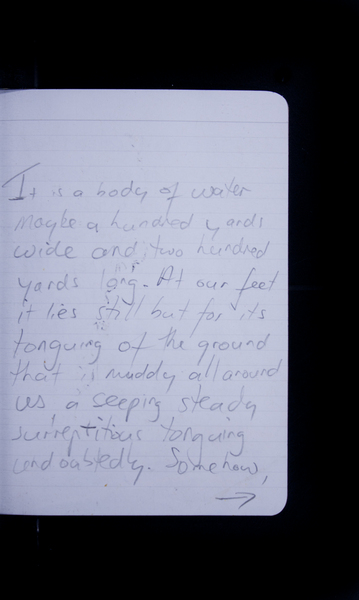 It is a body of water
maybe a hundred yards
wide and two hundred
yards long. At our feet
it lies still but for its
tonguing of the ground
that is muddy all around
us, a seeping steady
surreptitious tonguing
undoubtedly. Somehow,
→